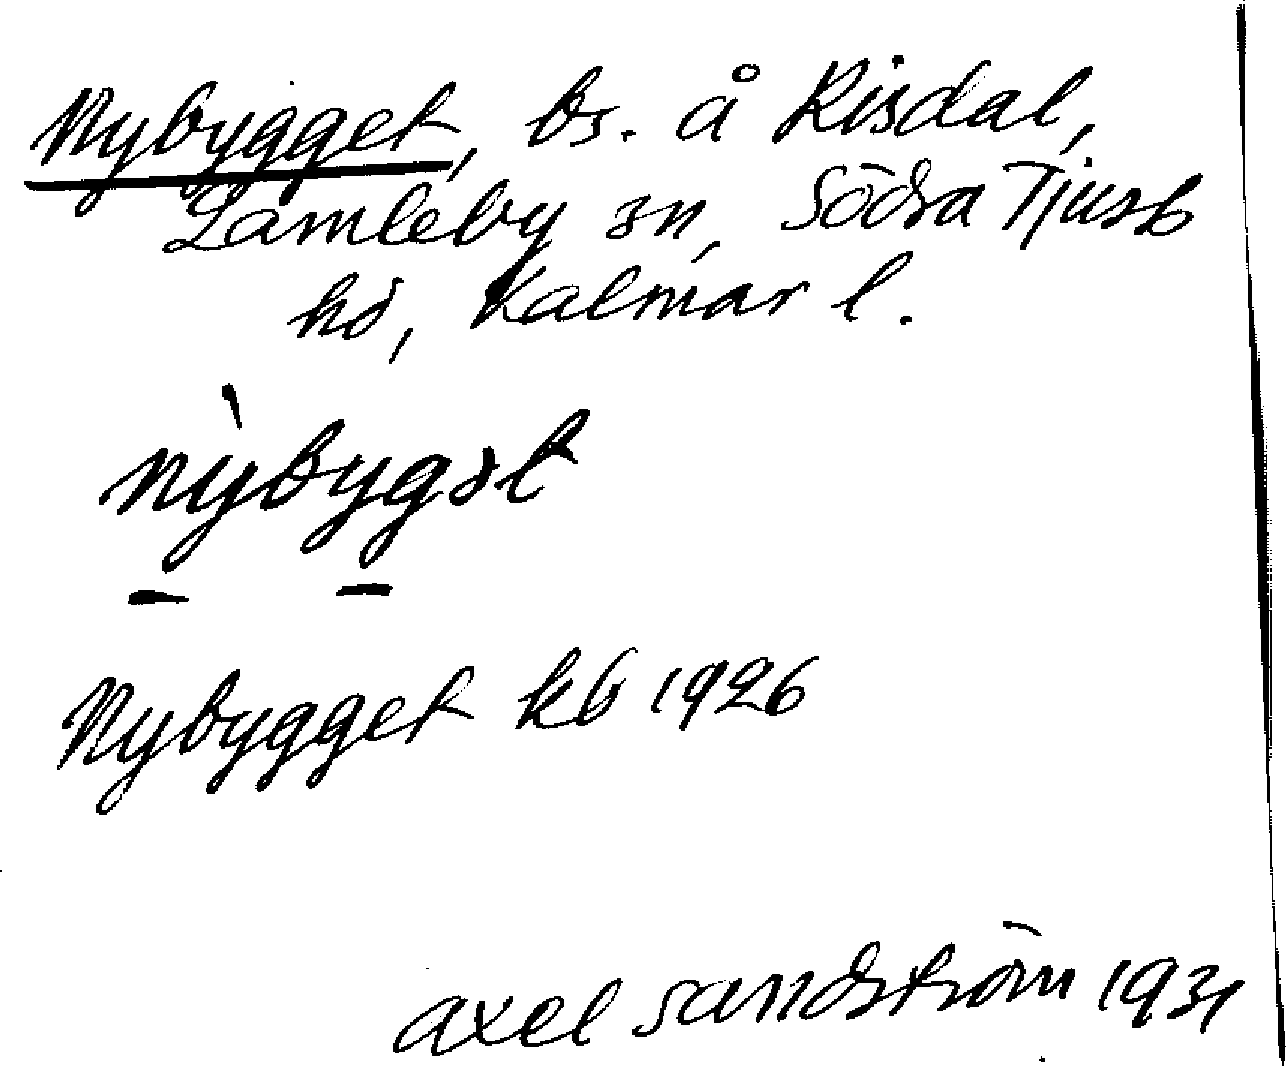 Nybygget, bs. å Risdal,
Lämleby sn, Södra Tjust
hd, Kalmar l.
nỳbygət
Nybygget kb 1926
Axel Sandström 1931